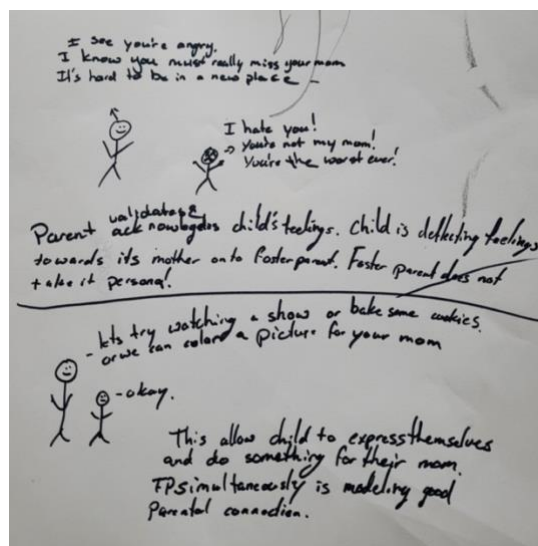 I see you're angry.
I know you must really miss your mom
It's hard to be in a new place
I hate you!
You're not my mom!
You're the worst ever!
Parent validates & acknowledges child's feelings. Child is deflecting feelings
towards its mother onto foster parent. Foster parent does not
take it personal.
- lets try watching a show or bake some cookies.
or we can color a picture for your mom
- okay.
This allow child to express themselves
and do something for their mom.
FP simultaneously is modeling good
parental connection.